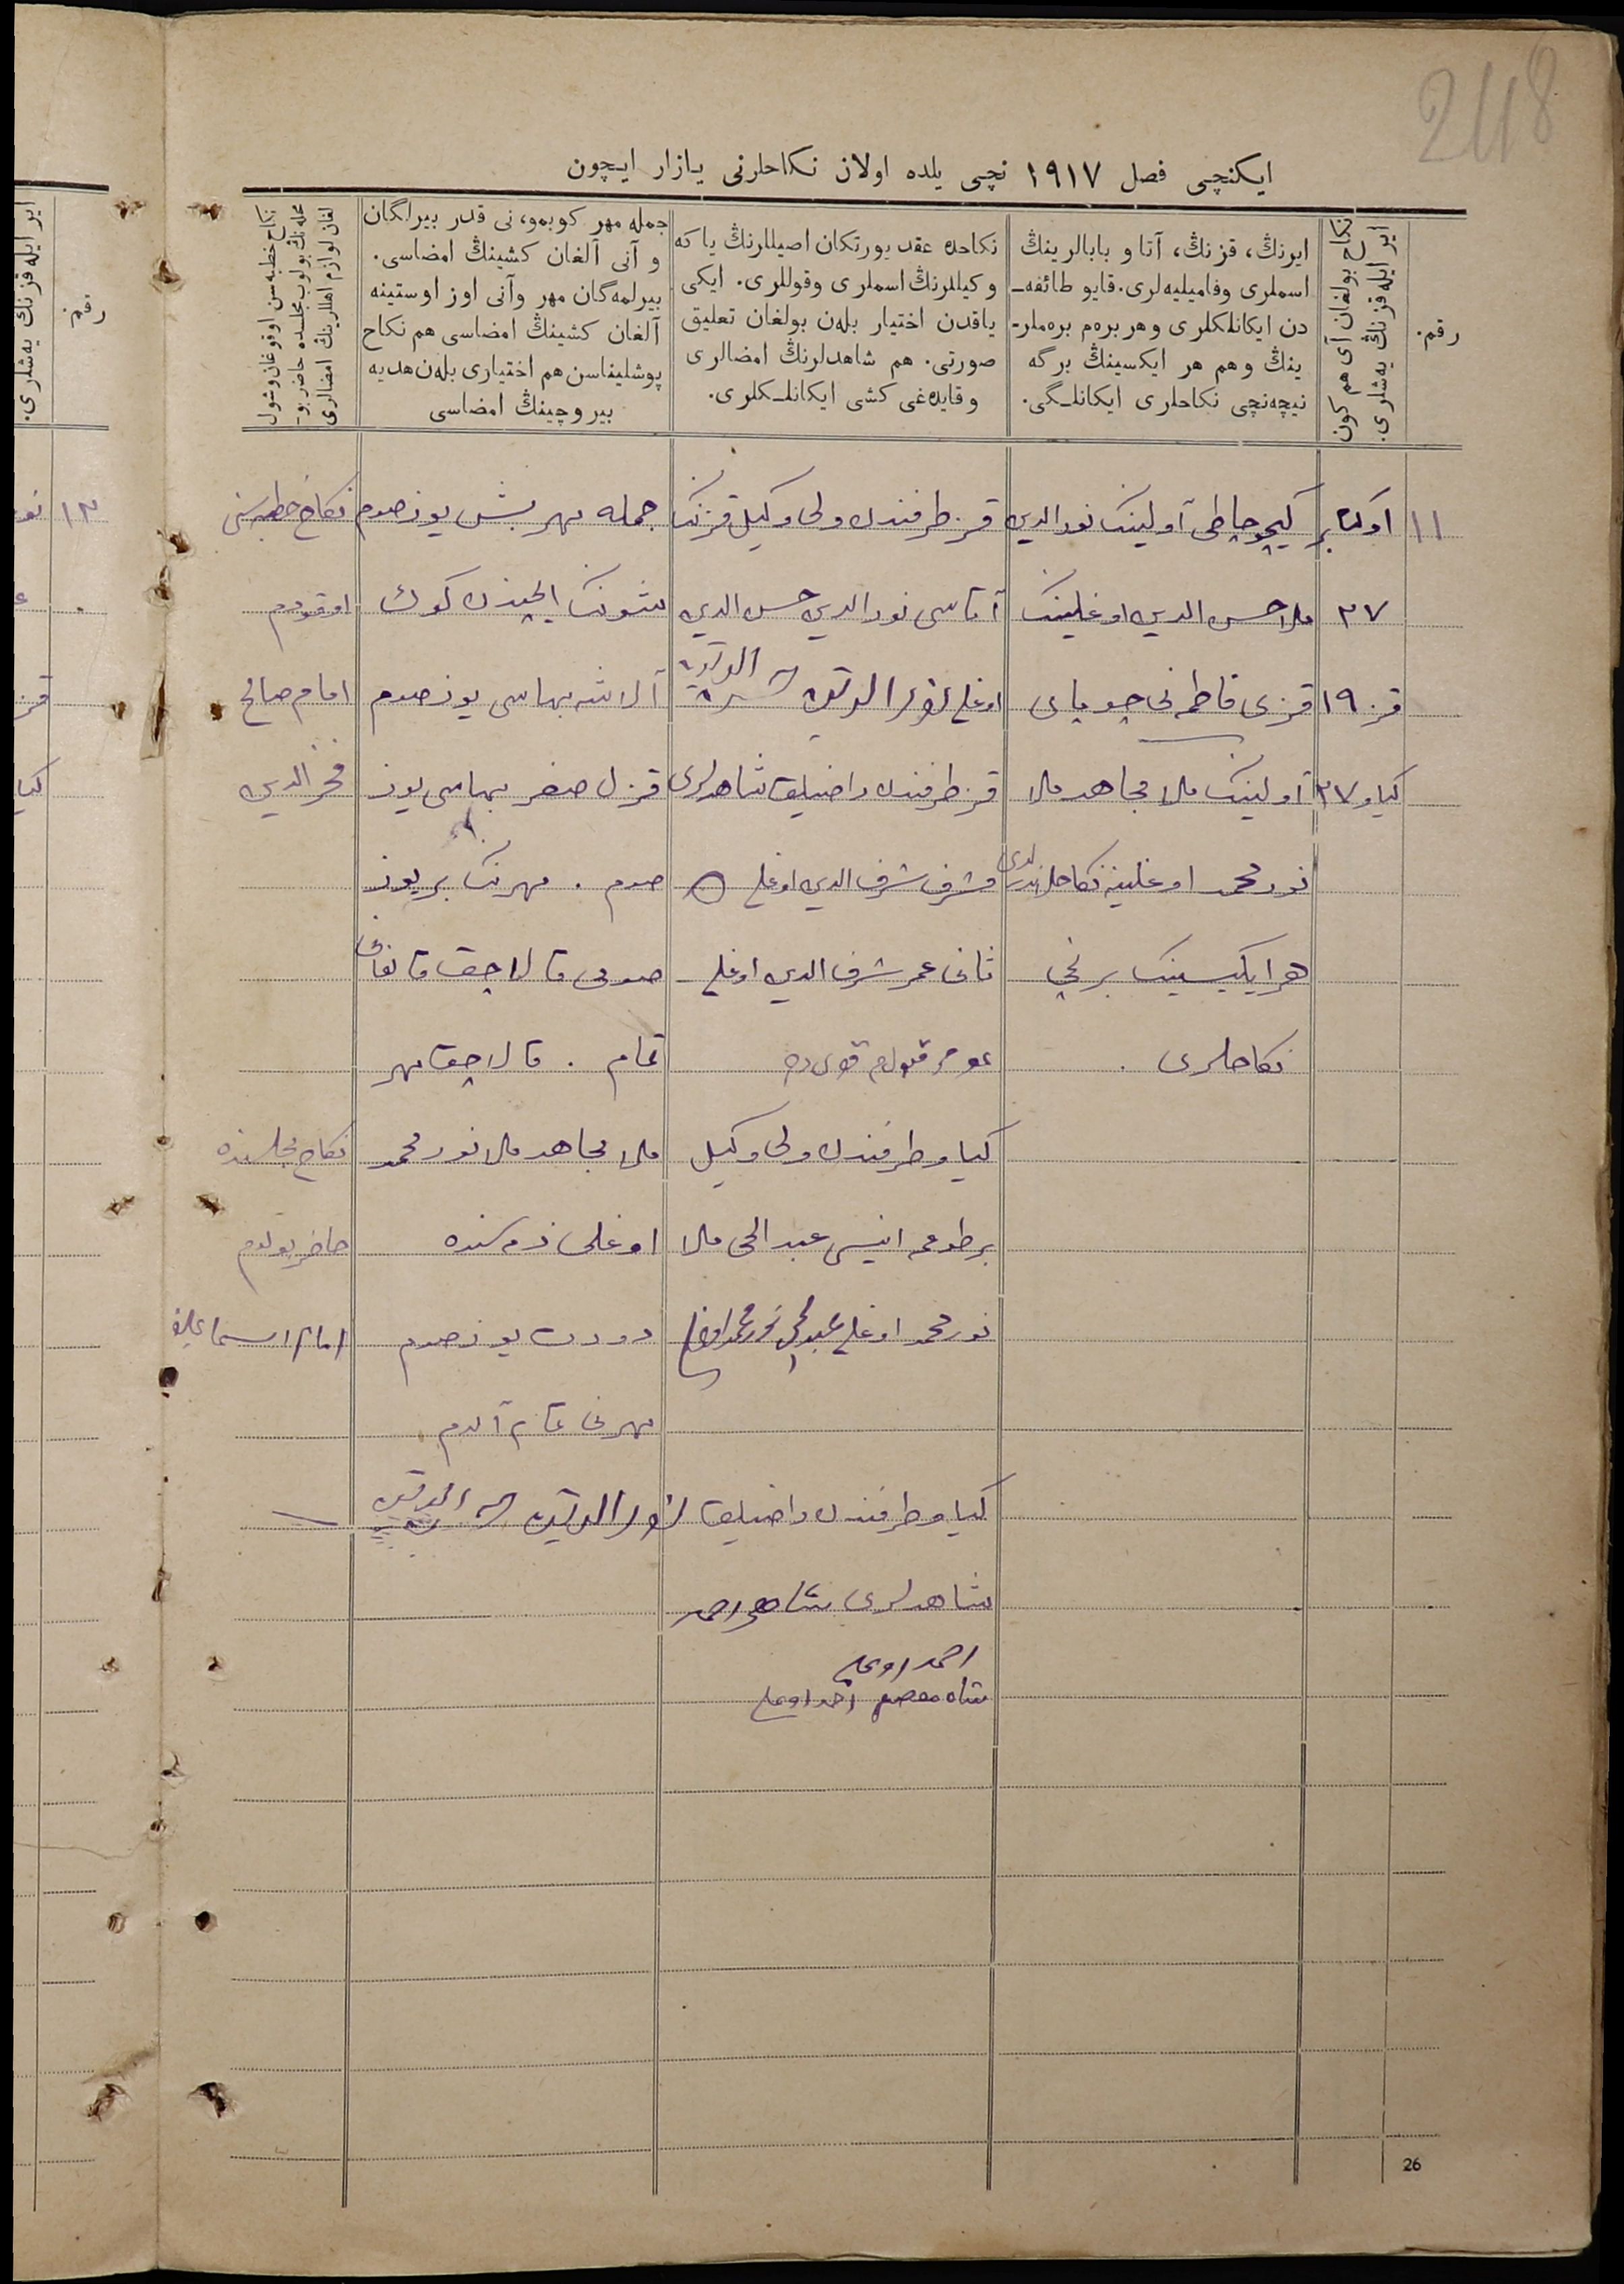 248
ایکنچی فصل ١٩١٧ نچی یلده اولان نکاحلرنی یازار ایچون
رقم.
نکاح بولغان آی هم کون
ایر ایله قزنڭ یه‌شلری.
ایرنڭ، قزنڭ، آتا و بابالرینڭ
اسملری وفامیلیه‌لری. قایو طائفه‌ـ
دن ایکانلکلری و هر بره‌م بره‌ملر-
ینڭ و هم هر ایکسینڭ برگه
نیچه‌نچی نکاحلری ایکانلـگی.
نکاحده عقد یورتکان اصیللرنڭ یا که
و کیللرنڭ اسملری وقوللری. ایکی
یاقدن اختیار بله‌ن بولغان تعلیق
صورتی. هم شاهدلرنڭ امضالری
وقایده‌غی کشی ایکانلـکلری.
جمله مهر کوبمو، نی قدر بیرلگان
و آنی آلغان کشینڭ امضاسی.
بیرلمه‌گان مهر وآنی اوز اوستینه
آلغان کشینڭ امضاسی هم نکاح
پوشلیناسن هم اختیاری بله‌ن هدیه
بیروچینڭ امضاسی
نکاح خطبه‌سن اوقوغان وشول
محله‌نڭ بولوب مجلسده حاضر بو-
لغان لوازم اهللرینڭ امضالری
١١
اوکتابر
٢٧
قز ١٩
کیاو ٢٧
کیچو چاطی آولینک نورالدین
ملا حسن الدین اوغلینک
قزی فاطمه نی چوپای
آولینک ملا مجاهد ملا
نورمحمد اوغلینه نکاحلاندی
هر ایکیسینک برنچی
نکاحلری .
قز طرفندن ولی وکیل قزنک
آتاسی نورالدین حسن الدین
اوغلی نورالدین
قز طرفندن راضیلق شاهدلری
مشرف شرف الدین اوغلی
ثانی عمر شرف الدین اوغلی
عومر قولم قویدم
کیاو طرفندن ولی وکیل
برطوعمه انیسی عبدالحی ملا
نورمحمد اوغلی عبدالحی نورمحمد اوغلی
کیاو طرفندن راضیلق
شاهدلری شاهی احمد
احمد اوغلی
جمله مهر بش یوز صوم
شونک ایچندن کوک
آلاشه بهاسی یوز صوم
قزل صغر بهاسی یوز
صوم . مهرنک بر یوز
صومی قالاچق قالغانی
تمام . قالاچق مهر
ملا مجاهد ملا نورمحمد
اوغلی ذمه سنده
دورت یوز صوم
مهرنی تمام آلدم
نورالدین
نکاح خطبه سنی
اوقودم
امام صالح
فخرالدین
نکاح مجلسنده
حاضر بولدم
امام اسماعیل
رقم.
ایر ایله قزنڭ یه‌شلری.
١٢
26